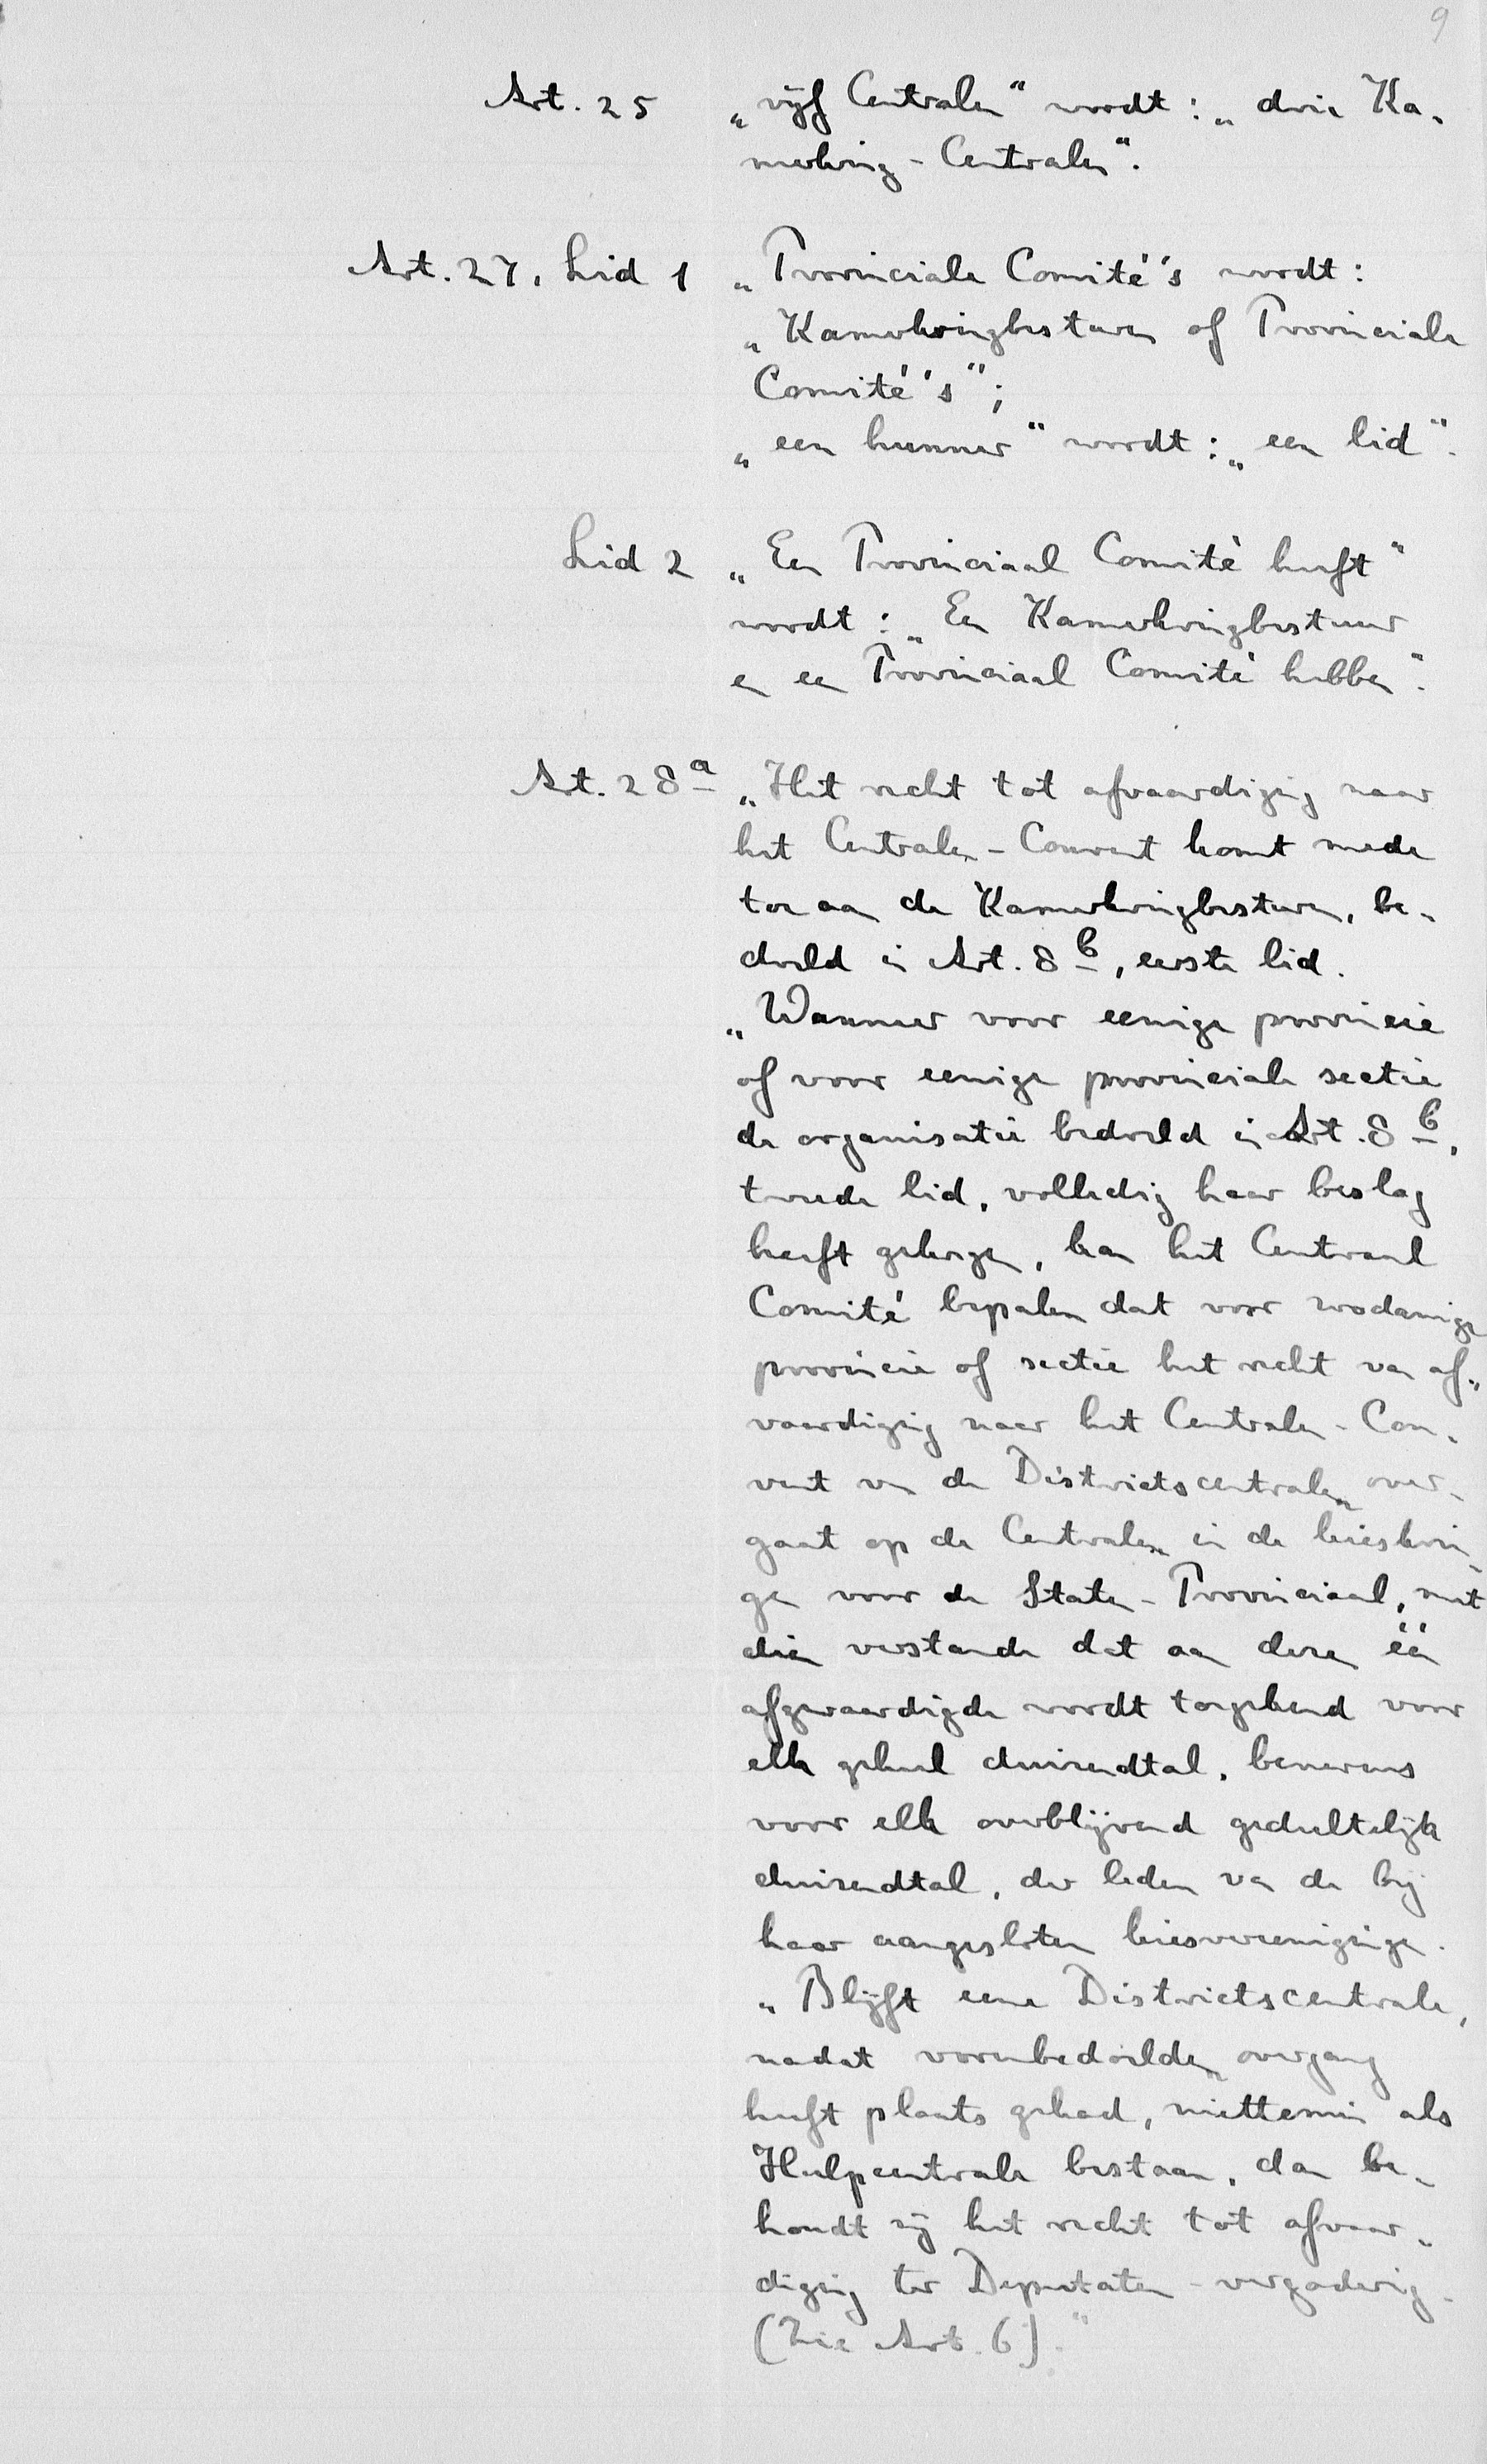 9
Art. 25 „vijf Centralen" wordt: „drie Ka-
merkring-Centralen".
Art. 27, Lid 1 „Provinciale Comité's wordt:
„Kamerkringbesturen of Provinciale
Comité's";
„een hunner" wordt: „een lid".
Lid 2 „Een Provinciaal Comité heeft"
wordt: „Een Kamerkringbestuur
en een Provinciaal Comité hebben".
Art. 28a „Het recht tot afvaardiging naar
het Centralen-Convent komt mede
toe aan de Kamerkringbesturen, be-
doeld in Art. 8b, eerste lid.
„Wanneer voor eenige provincie
of voor eenige provinciale sectie
de organisatie bedoeld in Art. 8b,
tweede lid, volledig haar beslag
heeft gekregen, kan het Centraal
Comité bepalen dat voor zoodanige
provincie of sectie het recht van af-
vaardiging naar het Centralen-Con-
vent van de Districtscentralen over-
gaat op de Centralen in de kieskrin-
gen voor de Staten-Provinciaal, met
dien verstande dat aan dezen één
afgevaardigde wordt toegekend voor
elk geheel duizendtal, benevens
voor elk overblijvend gedeeltelijk
duizendtal, der leden van de bij
haar aangesloten kiesvereenigingen.
„Blijft eene Districtscentrale,
nadat vorenbedoelde overgang
heeft plaats gehad, niettemin als
Hulpcentrale bestaan, dan be-
houdt zij het recht tot afvaar-
diging ter Deputaten-vergadering.
(Zie Art. 6)."